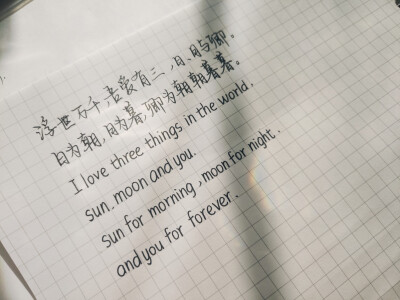 浮世万千,吾爱有三,日、月与卿。
日为朝,月为暮,卿为朝朝暮暮。
I love three things in the world.
sun, moon and you.
sun for morning, moon for night.
and you for forever.